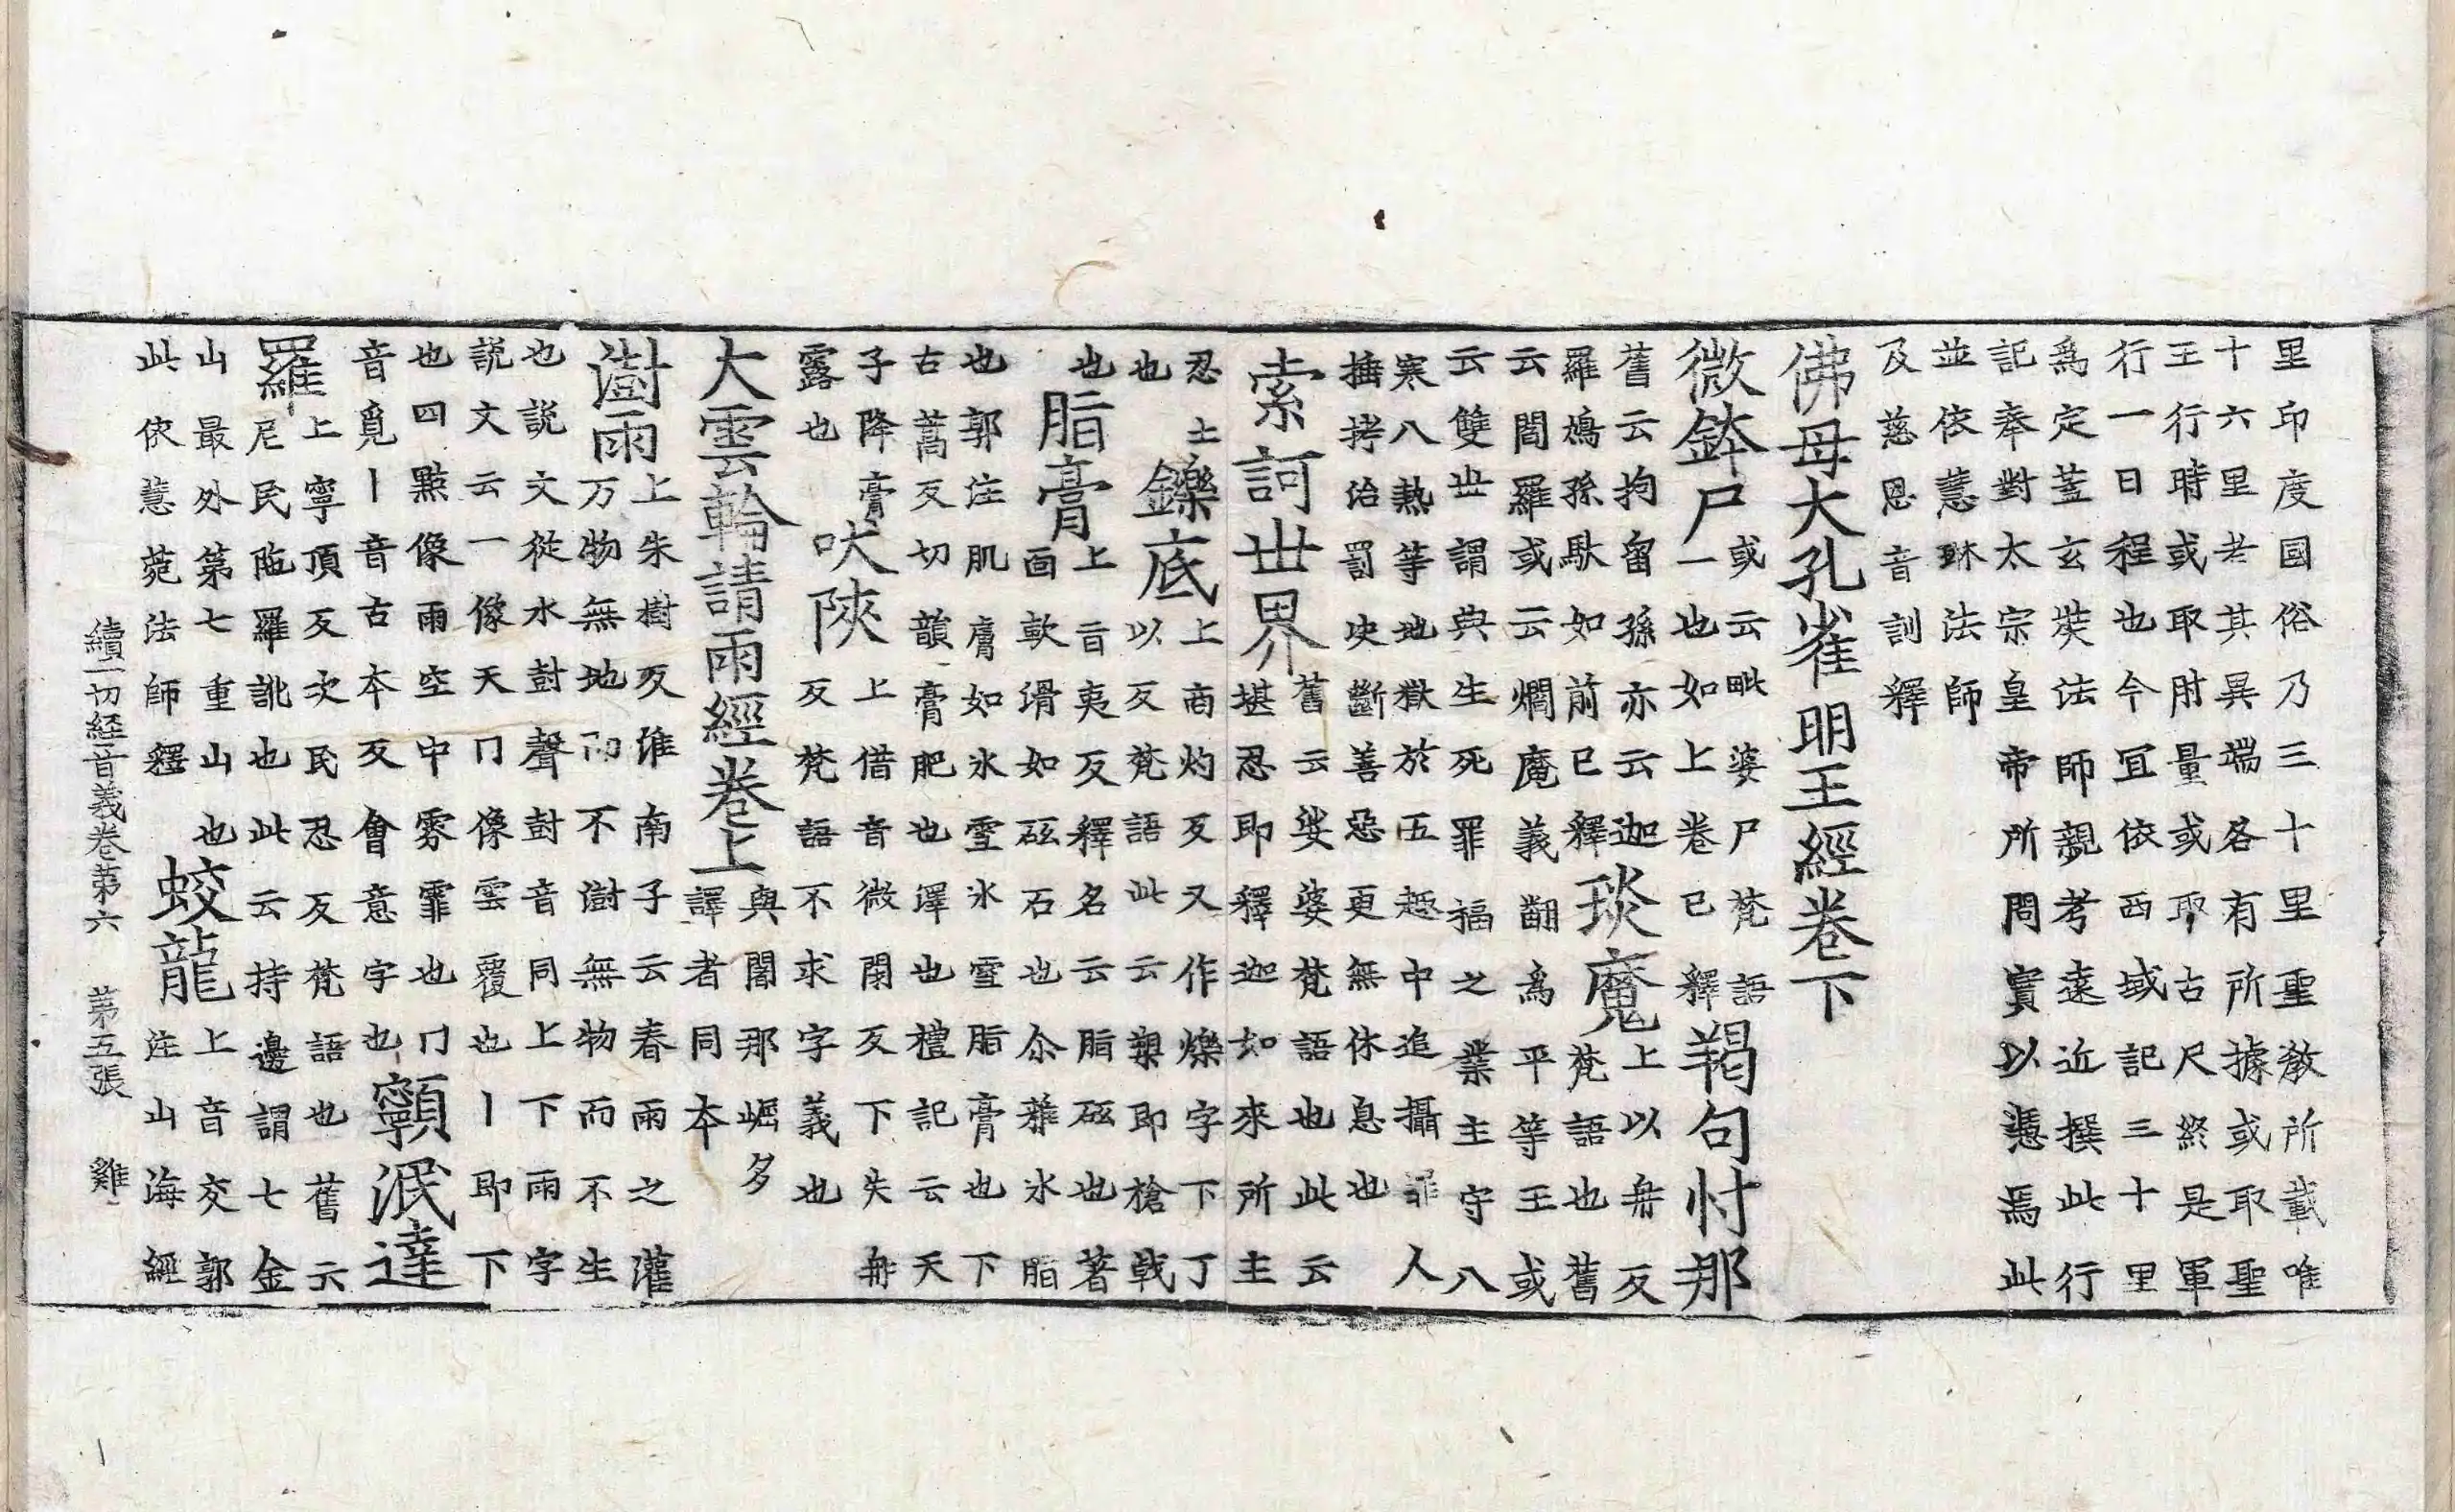 里印度國俗乃三十里聖敎所載唯
十六里若其異端各有所據或取聖
王行時或取肘量或取古尺終是軍
行一日程也今冝依西域記三十里
爲定蓋玄奘法師親考遠近撰此行
記奉對太宗皇帝所問實以憑焉此
並依慧琳法師
及慈恩音訓釋
佛母大孔雀明王經卷下
微鉢尸 或云毗婆尸梵語一也如上卷已釋 羯句忖那
舊云拘留孫亦云迦羅鳩孫馱如前已釋 琰魔 上以冉反梵語也舊
云閻羅或云爓魔義翻爲平等王或
云雙丗謂與生死罪福之業主守八
寒八熱等地獄於五趣中追攝罪人
捶拷治罰决斷善惡更無休息也
索訶丗界 舊云娑婆梵語也此云堪忍即釋迦如來所主
忍土也 鑠底 上商灼反又作爍字下丁以反梵語此云槊即槍戟
也 脂膏 上旨夷反釋名云脂砥也著面軟滑如砥石也尒雅冰脂
也郭注肌膚如冰雪冰雪脂膏也下
古蒿反切韻膏肥也澤也禮記云天
子降膏露也 吠陝 上借音微閉反下失冉反梵語不求字義也
大雲輪請雨經卷上 與闍那崛多譯者同本
澍雨 上朱樹反淮南子云春雨之灌万物無地而不澍無物而不生
也説文從水尌聲尌音同上下雨字
説文云一像天冂像雲覆也丨即下
也四點像雨空中雰霏也冂
音覓丨音古本反會意字也 顐泯達
羅 上寧頂反次民忍反梵語也舊云尼民陁羅訛也此云持邊謂七金
山最外第七重山也此依慧菀法師釋 蛟龍 上音交郭注山海經
續一切經音義卷苐六 苐五張 雞